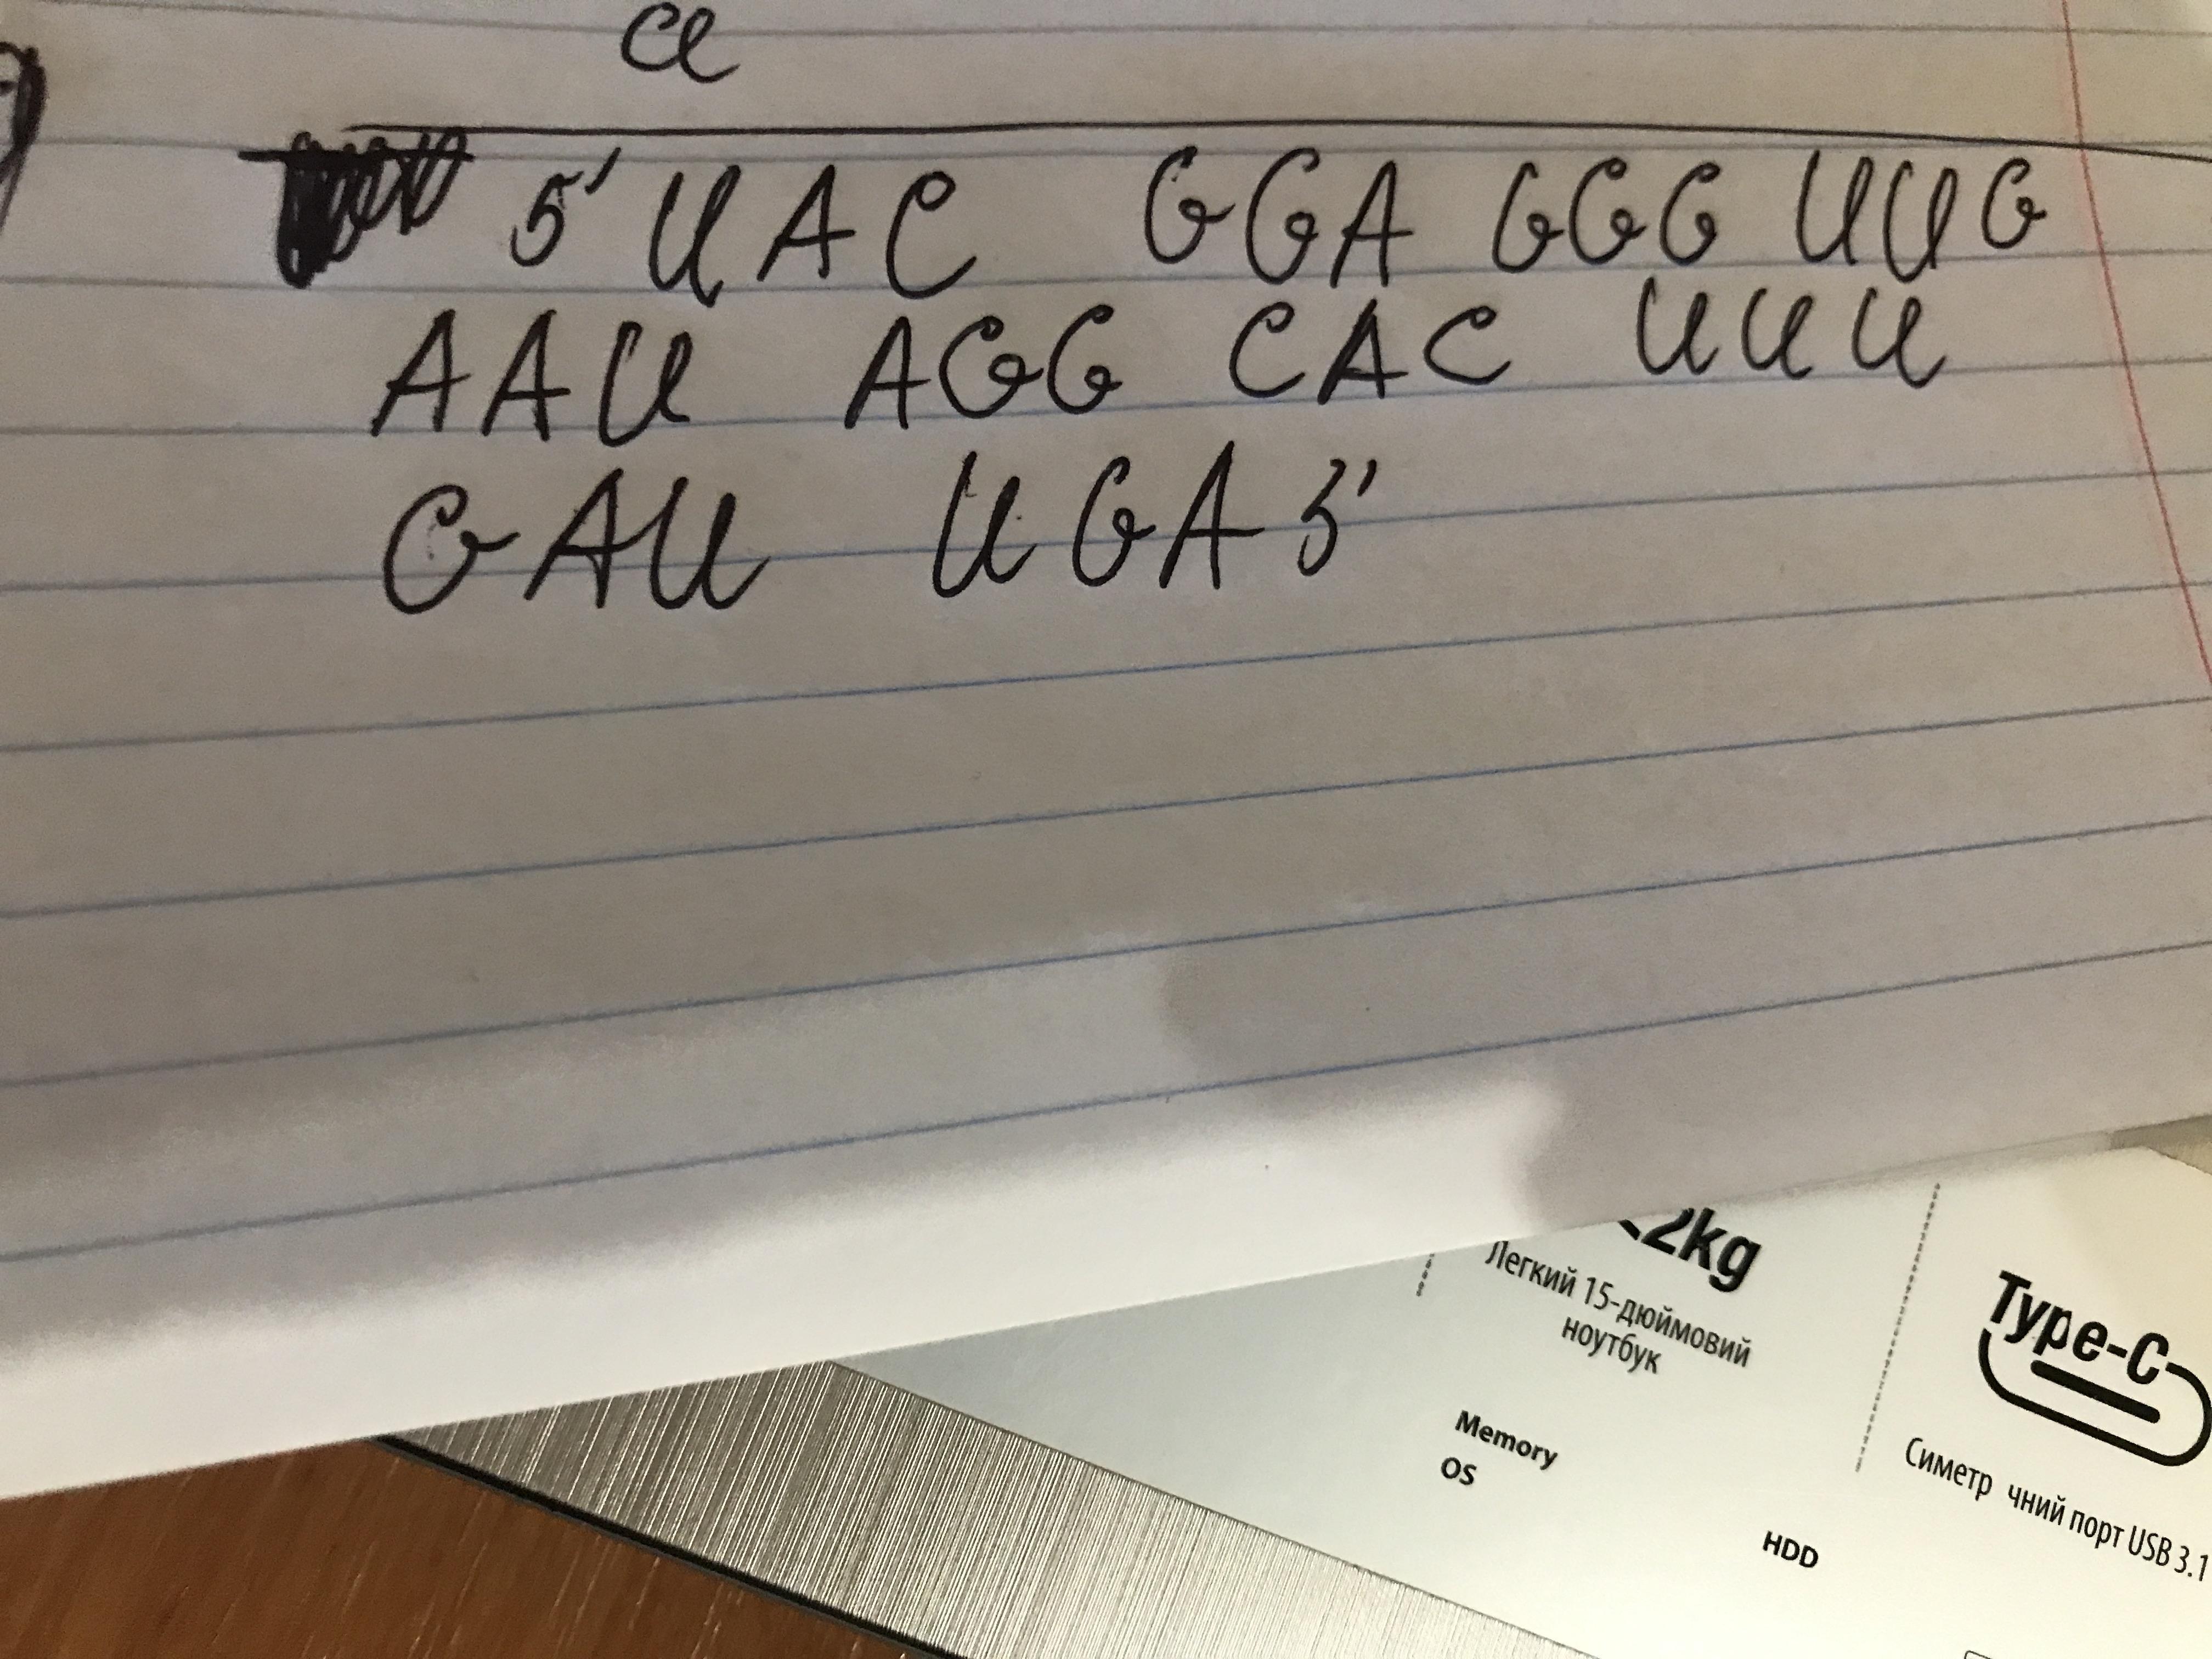 5' UAC GGA GGG UUG
AAU AGG CAC UUU
GAU UGA 3'
2kg
Легкий 15-дюймовий
ноутбук
Type-C
Memory
OS
Симетр чний порт USB 3.1
HDD